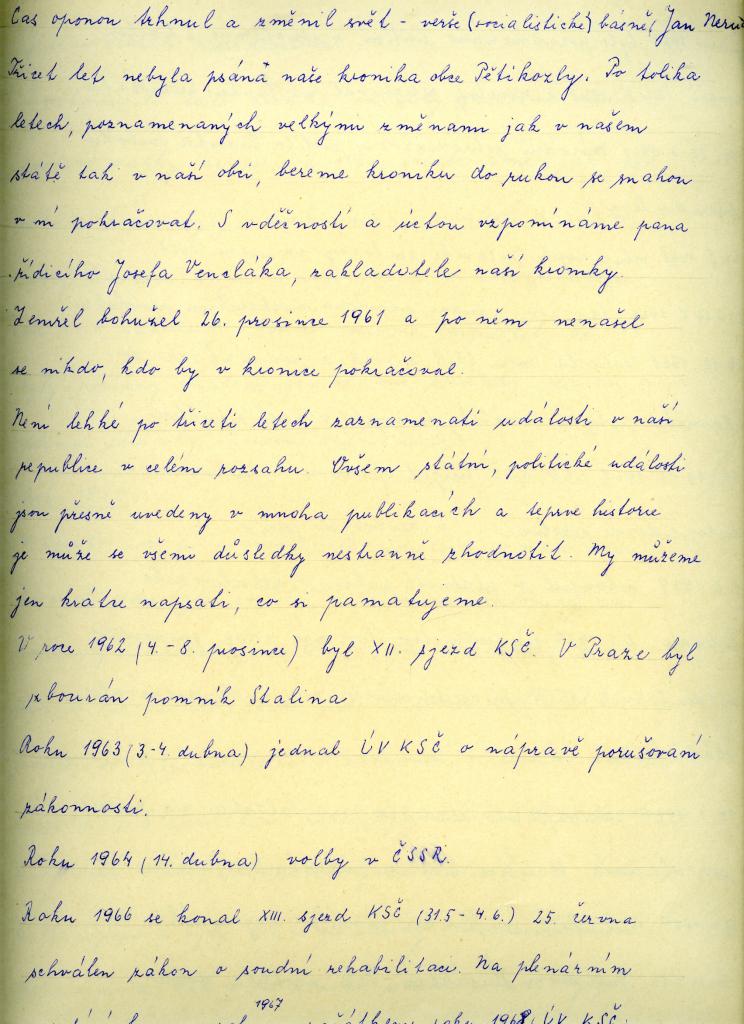 Čas oponou trhnul a změnil svět - verše (socialistické) básně, Jan Neru
Třicet let nebyla psána naše kronika obce Pětikozly. Po tolika
letech, poznamenaných velkými změnami jak v našem
státě tak v naší obci, bereme kroniku do rukou se snahou
v ní pokračovat. S vděčností a úctou vzpomínáme pana
řídicího Josefa Vencláka, zakladatele naší kroniky.
Zemřel bohužel 26. prosince 1961 a po něm nenašel
se nikdo, kdo by v kronice pokračoval.
Není lehké po třiceti letech zaznamenati události v naší
republice v celém rozsahu. Ovšem státní, politické události
jsou přesně uvedeny v mnoha publikacích a teprve historie
je může se všemi důsledky nestranně zhodnotit. My můžeme
jen krátce napsati, co si pamatujeme.
V roce 1962 (4. - 8. prosince) byl XII. sjezd KSČ. V Praze byl
zbourán pomník Stalina
Roku 1963 (3.-4. dubna) jednal ÚV KSČ o nápravě porušování
zákonnosti.
Roku 1964 (14. dubna) volby v ČSSR.
Roku 1966 se konal XIII. sjezd KSČ (31.5 - 4.6.) 25. června
schválen zákon o soudní rehabilitaci. Na plenárním
1967
roku 1968 ÚV KSČ